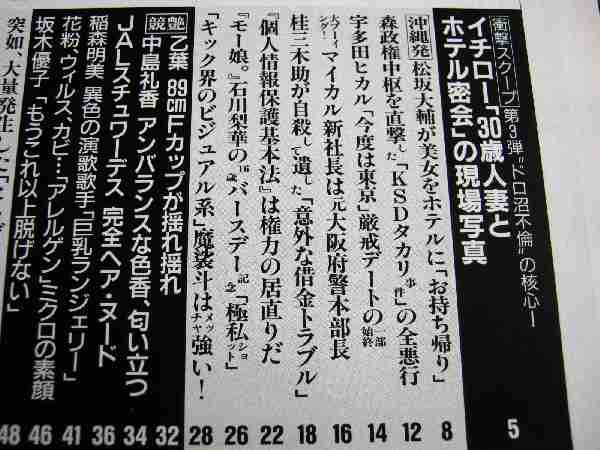 衝撃スクープ 第3弾"ドロ沼不倫"の核心!
イチロー「30歳人妻と
ホテル密会」の現場写真
5
沖縄発 松坂大輔が美女をホテルに「お持ち帰り」 8
森政権中枢を直撃した「KSDタカリ事件」の全悪行 12
宇多田ヒカル「今度は東京」厳戒デートの一部始終 14
マイカル新社長は元大阪府警本部長 16
桂三木助が自殺して遺した「意外な借金トラブル」 18
『個人情報保護基本法』は権力の居直りだ 22
『モー娘。』石川梨華の16歳バースデー記念「極私ショット」 26
「キック界のビジュアル系」魔裟斗はメッチャ強い! 28
競艶 乙葉 89cmFカップが揺れ揺れ 32
中島礼香 アンバランスな色香、匂い立つ 34
JALスチュワーデス 完全ヘア・ヌード 36
稲森明美 異色の演歌歌手「巨乳ランジェリー」 41
花粉、ウィルス、カビ…「アレルゲン」ミクロの素顔 46
坂木優子「もうこれ以上脱げない」 48
突如、大量発生した「